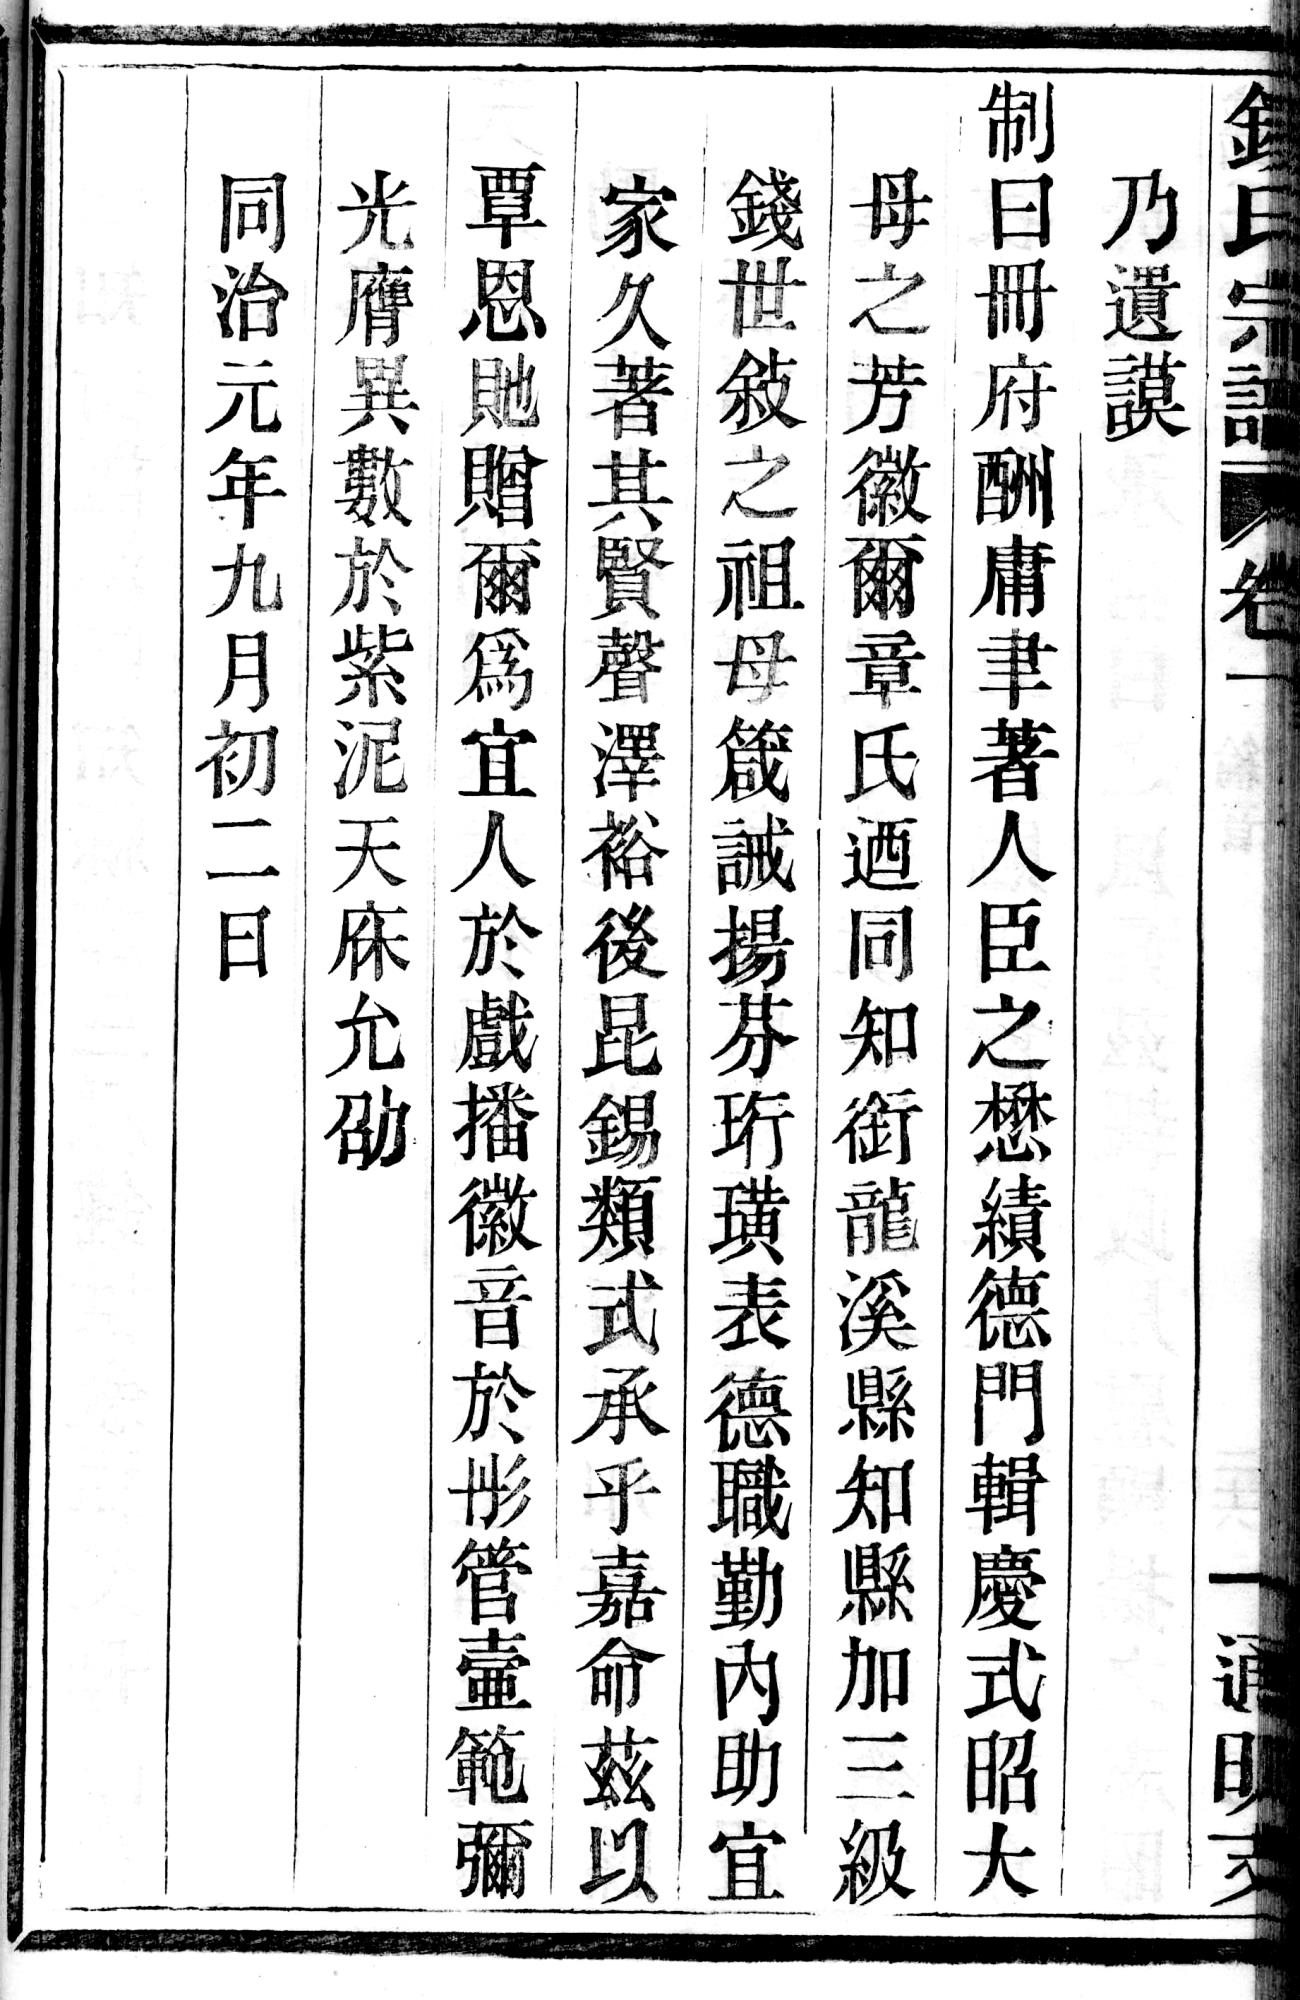 錢氏宗譜 卷一 一 通明支
乃遺謨
制曰冊府酬庸聿著人臣之懋績德門輯慶式昭大
母之芳徽爾章氏迺同知銜龍溪縣知縣加三級
錢世敍之祖母箴誡揚芬珩璜表德職勤內助宜
家久著其賢聲澤裕後昆錫類式承乎嘉命茲以
覃恩貤贈爾爲宜人於戲播徽音於彤管壼範彌
光膺異數於紫泥天庥允劭
同治元年九月初二日